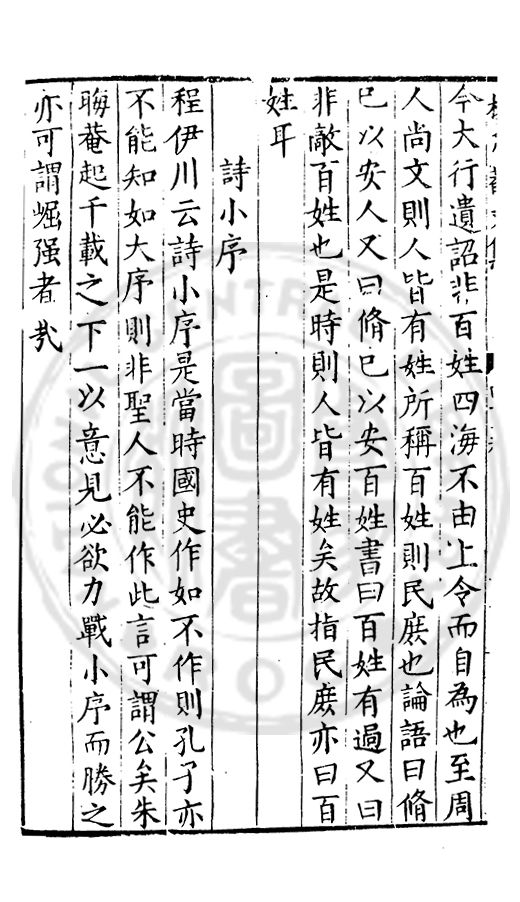 今大行遺詔非百姓四海不由上令而自為也至周
人尚文則人皆有姓所稱百姓則民庶也論語曰脩
已以安人又曰脩已以安百姓書曰百姓有過又曰
非敵百姓也是時則人皆有姓矣故指民庶亦曰百
姓耳
詩小序
程伊川云詩小序是當時國史作如不作則孔子亦
不能知如大序則非聖人不能作此言可謂公矣朱
晦菴起千載之下一以意見必欲力戰小序而勝之
亦可謂崛强者哉